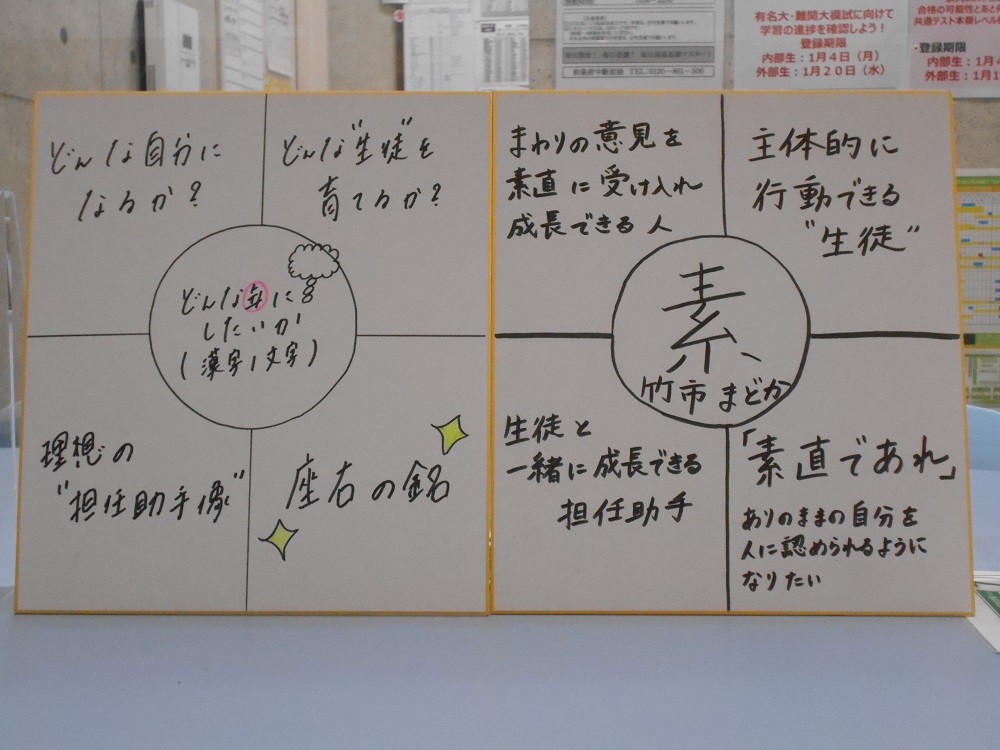 有名大・難関大模試に向けて
学習の進捗を確認しよう！
登録期限
内部生：1月4日（月）
外部生：1月20日（水）
合格の可能性とあと
共通テスト本番レベル
・登録期限
内部生：1月4
外部生：1月1
どんな自分に
なるか？
どんな"生徒"を
育てるか？
どんな年に
したいか
(漢字1文字)
理想の
"担任助手像"
座右の銘
まわりの意見を
素直に受け入れ
成長できる人
主体的に
行動できる
"生徒"
素
竹市まどか
生徒と
一緒に成長できる
担任助手
「素直であれ」
ありのままの自分を
人に認められるように
なりたい